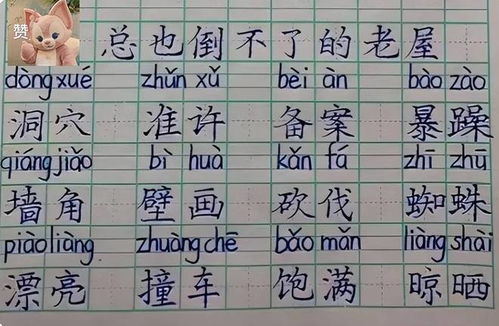 赞
总也倒不了的老屋
dòng xué zhǔn xǔ bèi àn bào zào
洞穴 准许 备案 暴躁
qiáng jiǎo bì huà kǎn fá zhī zhū
墙角 壁画 砍伐 蜘蛛
piào liàng zhuàng chē bǎo mǎn liàng shài
漂亮 撞车 饱满 晾晒